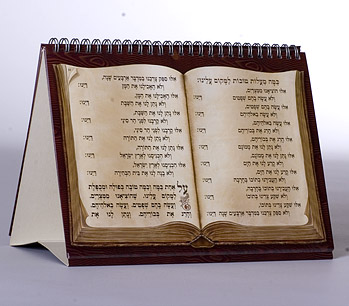 כמה מעלות טובות למקום עלינו:
אלו הוציאנו ממצרים,
ולא עשה בהם שפטים, דינו:
אלו עשה בהם שפטים,
ולא עשה באלהיהם, דינו:
אלו עשה באלהיהם,
ולא הרג את בכוריהם, דינו:
אלו הרג את בכוריהם,
ולא נתן לנו את ממונם, דינו:
אלו נתן לנו את ממונם,
ולא קרע לנו את הים, דינו:
אלו קרע לנו את הים,
ולא העבירנו בתוכו בחרבה, דינו:
אלו העבירנו בתוכו בחרבה,
ולא שקע צרינו בתוכו, דינו:
אלו שקע צרינו בתוכו,
ולא ספק צרכנו במדבר ארבעים שנה, דינו:
אלו ספק צרכנו במדבר ארבעים שנה,
ולא האכילנו את המן, דינו:
אלו האכילנו את המן,
ולא נתן לנו את השבת, דינו:
אלו נתן לנו את השבת,
ולא קרבנו לפני הר סיני, דינו:
אלו קרבנו לפני הר סיני,
ולא נתן לנו את התורה, דינו:
אלו נתן לנו את התורה,
ולא הכניסנו לארץ ישראל, דינו:
אלו הכניסנו לארץ ישראל,
ולא בנה לנו את בית הבחירה, דינו:
על אחת כמה וכמה טובה כפולה ומכפלת
למקום עלינו, שהוציאנו ממצרים,
ועשה בהם שפטים, ועשה באלהיהם,
והרג את בכוריהם, ונתן לנו את